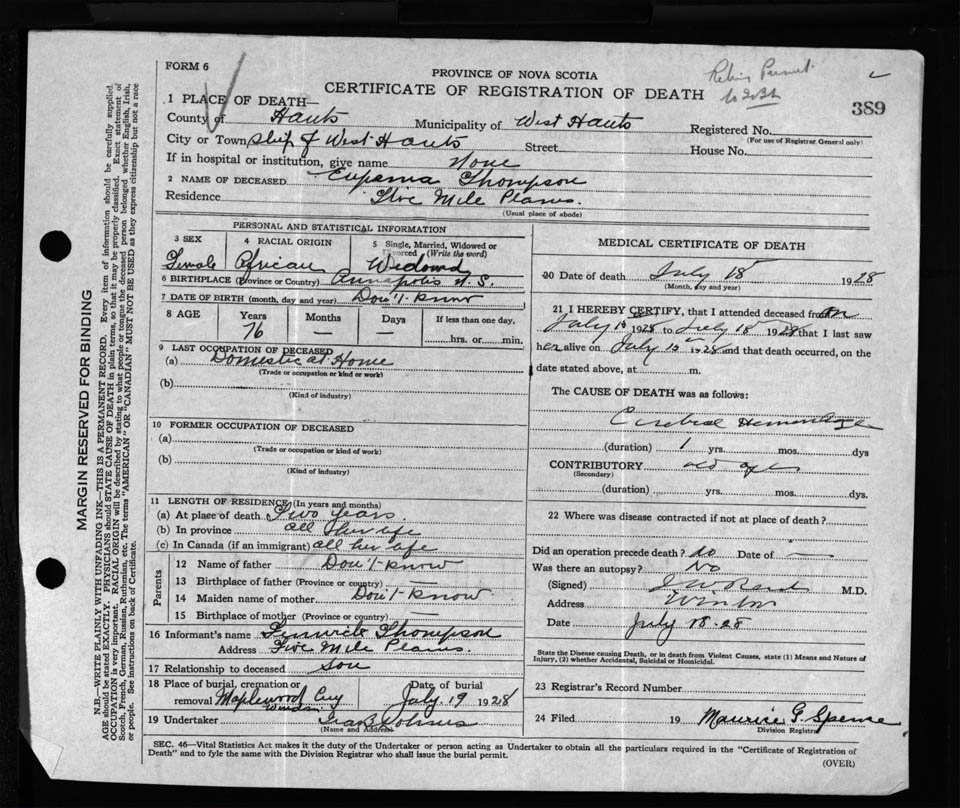 FORM 6
PROVINCE OF NOVA SCOTIA
CERTIFICATE OF REGISTRATION OF DEATH
389
1 PLACE OF DEATH—
County of Hants Municipality of West Hants Registered No.
(For use of Registrar General only)
City or Town Ship of West Hants Street House No.
If in hospital or institution, give name None
2 NAME OF DECEASED Eupema Thompson
Residence Five Mile Plains.
(Usual place of abode)
PERSONAL AND STATISTICAL INFORMATION
3 SEX 4 RACIAL ORIGIN 5 Single, Married, Widowed or Divorced (Write the word)
Female African Widowed
6 BIRTHPLACE (Province or Country) Annapolis N.S.
7 DATE OF BIRTH (month, day and year) Don't-know
8 AGE Years Months Days If less than one day,
76 — — hrs. or min.
9 LAST OCCUPATION OF DECEASED
(a) Domestic at Home
(Trade or occupation or kind or work)
(b)
(Kind of industry)
10 FORMER OCCUPATION OF DECEASED
(a)
(Trade or occupation or kind of work)
(b)
(Kind of industry)
11 LENGTH OF RESIDENCE (In years and months)
(a) At place of death Two years
(b) In province all her life
(c) In Canada (if an immigrant) all her life
Parents
12 Name of father Don't-know
13 Birthplace of father (Province or country) —
14 Maiden name of mother Don't-know
15 Birthplace of mother (Province or country) —
16 Informant's name Thompson
Address Five Mile Plains.
17 Relationship to deceased Son
18 Place of burial, cremation or removal Maplewood Cmy Windsor Date of burial July 19 1928
19 Undertaker
(Name and Address)
MEDICAL CERTIFICATE OF DEATH
20 Date of death July 18 1928
(Month, day and year)
21 I HEREBY CERTIFY, that I attended deceased from
July 1928 to July 18 1928 that I last saw
her alive on July 1928 and that death occurred, on the
date stated above, at m.
The CAUSE OF DEATH was as follows:
Cerebral Hemorrhage
(duration) 1 yrs. mos. dys
CONTRIBUTORY old age
(Secondary)
(duration) yrs. mos. dys.
22 Where was disease contracted if not at place of death?
Did an operation precede death? No Date of —
Was there an autopsy? No
(Signed) M.D.
Address
Date July 18-28
State the Disease causing Death, or in death from Violent Causes, state (1) Means and Nature of
Injury, (2) whether Accidental, Suicidal or Homicidal.
23 Registrar's Record Number
24 Filed 19 Maurice G. Spence
Division Registrar
SEC. 46—Vital Statistics Act makes it the duty of the Undertaker or person acting as Undertaker to obtain all the particulars required in the "Certificate of Registration of
Death" and to fyle the same with the Division Registrar who shall issue the burial permit.
(OVER)
MARGIN RESERVED FOR BINDING
N.B.—WRITE PLAINLY WITH UNFADING INK—THIS IS A PERMANENT RECORD. Every item of information should be carefully supplied.
AGE should be stated EXACTLY. PHYSICIANS should STATE CAUSE OF DEATH in plain terms, so that it may be properly classified. Exact statement of
OCCUPATION is very important. RACIAL ORIGIN will be described by stating to what people or tongue the deceased person belonged whether English, Irish,
Scotch, French, German, Russian, Ruthenian, etc. The terms "AMERICAN" OR "CANADIAN" MUST NOT BE USED as they express citizenship but not a race
or people. See instructions on back of Certificate.